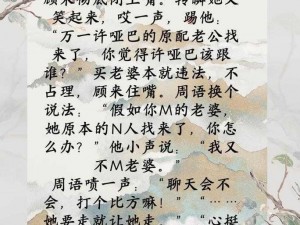 顾来彻底闭上嘴。转瞬她又
笑起来，哎一声，踢他：
“万一许哑巴的原配老公找
来了，你觉得许哑巴该跟
谁？”买老婆本就违法，不
占理，顾来住嘴。周语换个
说法：“假如你M的老婆，
她原本的N人找来了，你怎
么办？”他小声说：“我又
不M老婆。”
周语啧一声：“聊天会不
会，打个比方嘛！”“……
她要走就让她走。”“心挺